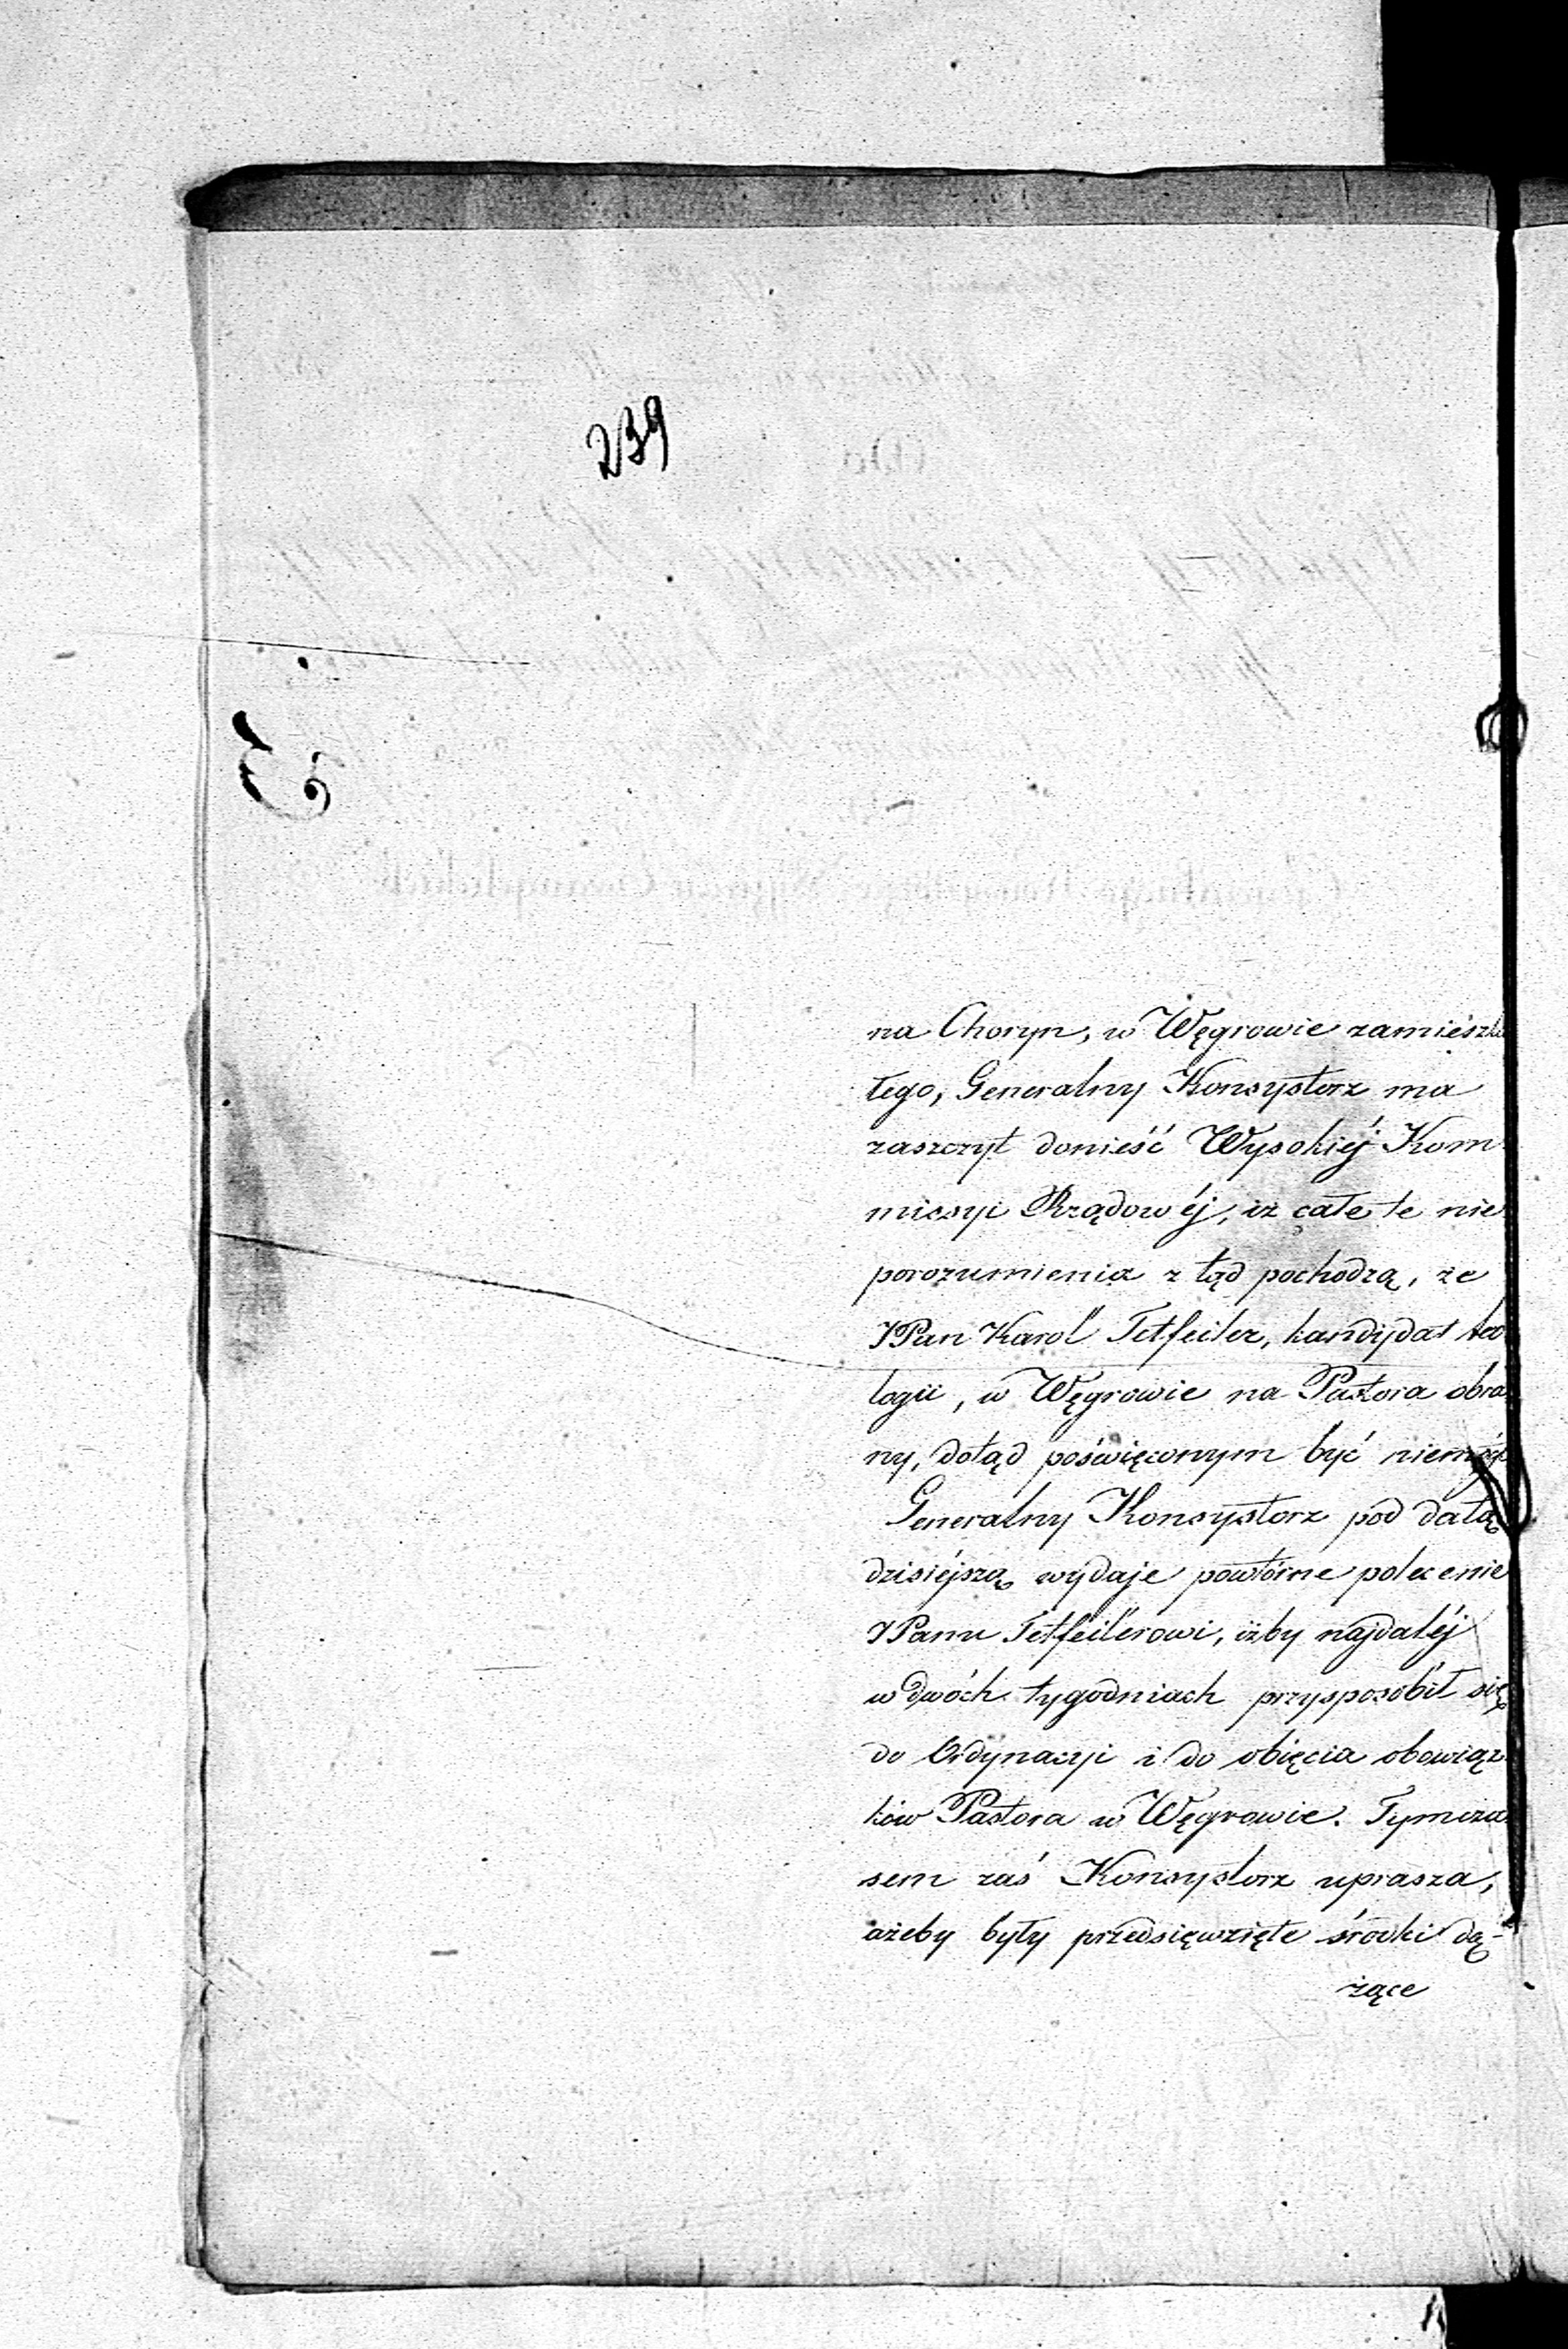 239
na Choryn, w Węgrowie zamieszka
łego, Generalny Konsystorz ma
zaszczyt donieść Wysokiéj Kom
missyi Rządowéj, iż całe te nie
porozumienia z tąd pochodzą, że
JPan Karol Tetfeiler, kandydat teo
logii, w Węgrowie na Pastora obra
ny, dotąd poświęconym być
Generalny Konsystorz pod datą
dzisiéjszą wydaje powtórne polecenie
JPanu Tetfeilerowi, iżby najdaléj
w dwóch tygodniach przysposobił się
do Ordynacyi i do obięcia obowiąz
ków Pastora w Węgrowie. Tymcza
sem zaś Konsystorz uprasza,
ażeby były przedsięwzięte środki dą-
żące